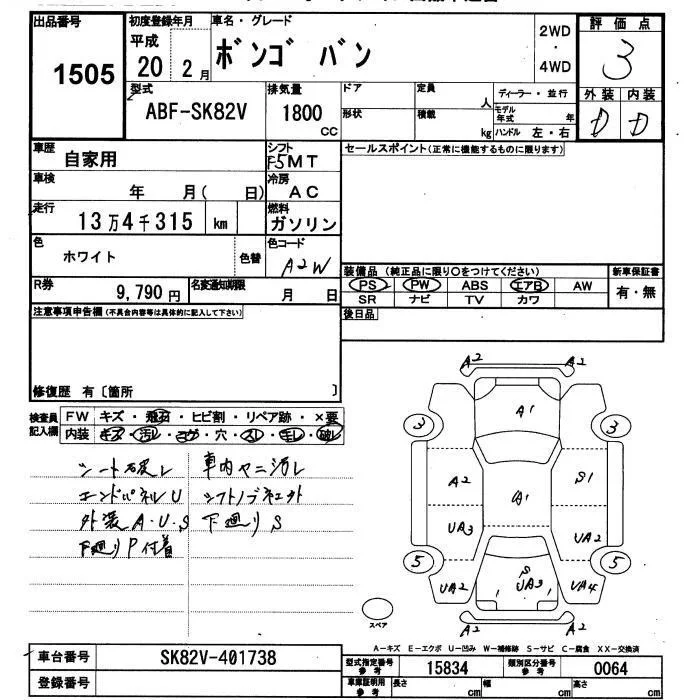 出品番号
1505
初度登録年月
平成
20 2月
車名・グレード
ボンゴ バン
2WD
・
4WD
評価点
3
外装 内装
D D
型式
ABF-SK82V
排気量
1800
cc
ドア
定員
人
形状
積載
kg
ディーラー・並行
モデル年式 年
ハンドル 左・右
車歴
自家用
シフト
F5MT
セールスポイント(正常に機能するものに限ります)
車検
年 月( 日)
冷房
AC
走行
13万4千315 km
燃料
ガソリン
色
ホワイト
色替
色コード
A2W
装備品(純正品に限り〇をつけてください)
新車保証書
PS PW ABS エアB AW
有・無
SR ナビ TV カワ
R券
9,790円
名変通知期限
月 日
後日品
注意事項申告欄(不具合内容等は具体的に記入して下さい)
修復歴 有〔箇所 〕
検査員記入欄
FW キズ・飛石・ヒビ割・リペア跡・×要
内装 キズ・汚れ・コゲ・穴・スレ・モレ・破レ
シート破レ 車内ヤニ汚レ
エンドパネルU シフトノブキズ
外装A.U.S 下廻りS
下廻りP付着
A2 A2
A1
3 3
A2 A1 S1
UA3 UA2
5 5
UA2 S UA3 UA4
A2 A2
スペア
A-キズ E-エクボ U-凹み W-補修跡 S-サビ C-腐食 XX-交換済
車台番号
SK82V-401738
登録番号
型式指定番号
参考
15834
類別区分番号
参考
0064
車庫証明用
参考
長さ cm
幅 cm
高さ cm